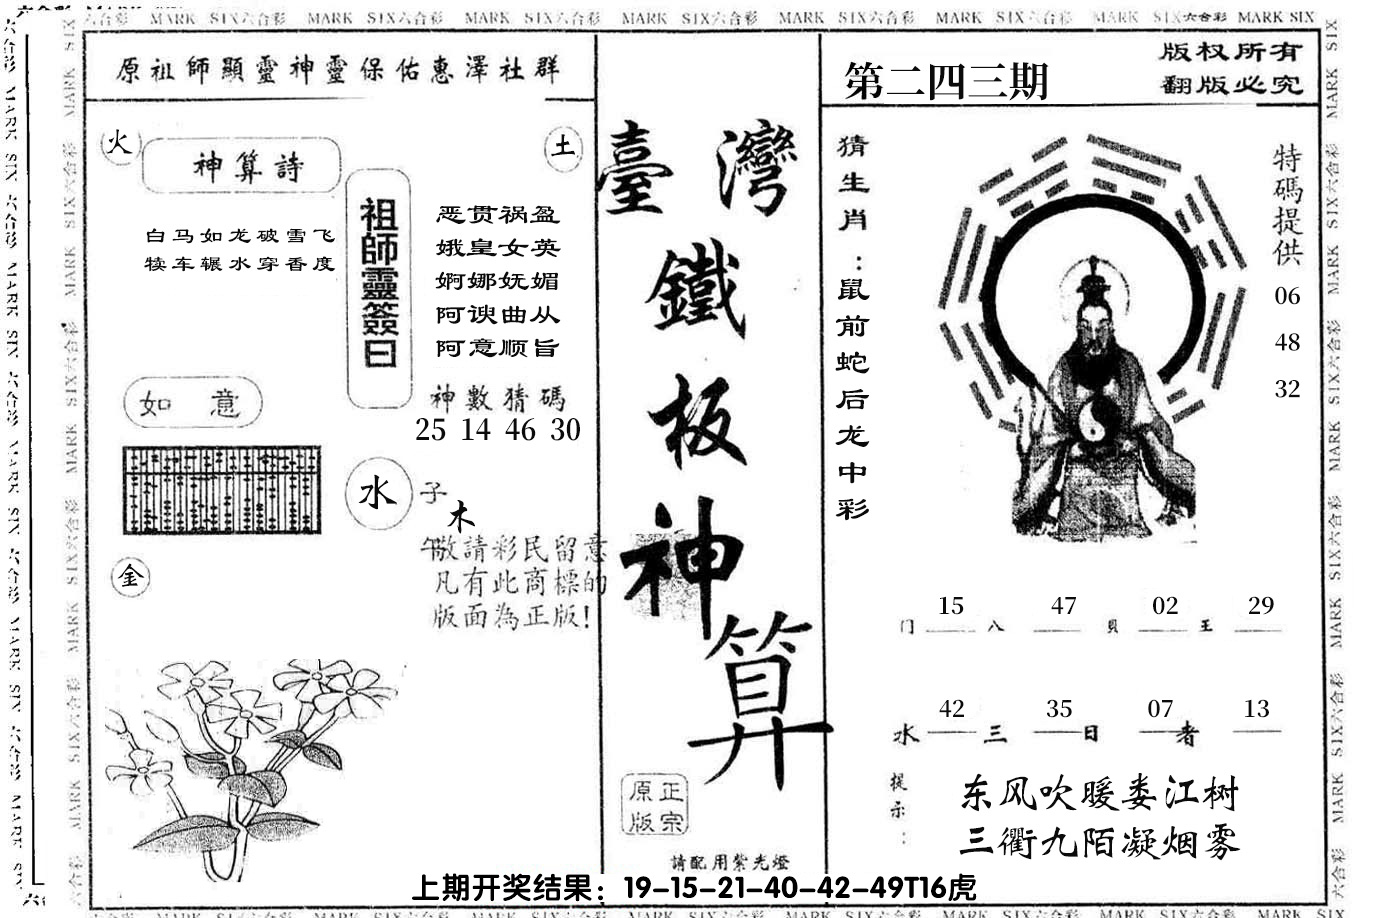 原祖師顯靈神靈保佑惠澤社群
火
土
神算詩
白马如龙破雪飞
犊车辗水穿香度
祖師靈簽曰
恶贯祸盈
娥皇女英
婀娜妩媚
阿谀曲从
阿意顺旨
如 意
神數猜碼
25 14 46 30
水
子
木
午
敬請彩民留意
凡有此商標的
版面為正版!
金
臺灣
鐵
板
神
算
正宗
原版
請配用紫光燈
第二四三期
版权所有
翻版必究
猜生肖:鼠前蛇后龙中彩
特碼提供
06
48
32
15 47 02 29
门 八 贝 王
42 35 07 13
水 三 日 者
提示:
东风吹暖娄江树
三衢九陌凝烟雾
上期开奖结果：19-15-21-40-42-49T16虎
MARK SIX六合彩 MARK SIX六合彩 MARK SIX六合彩 MARK SIX六合彩 MARK SIX六合彩 MARK SIX六合彩 MARK SIX六合彩 MARK SIX